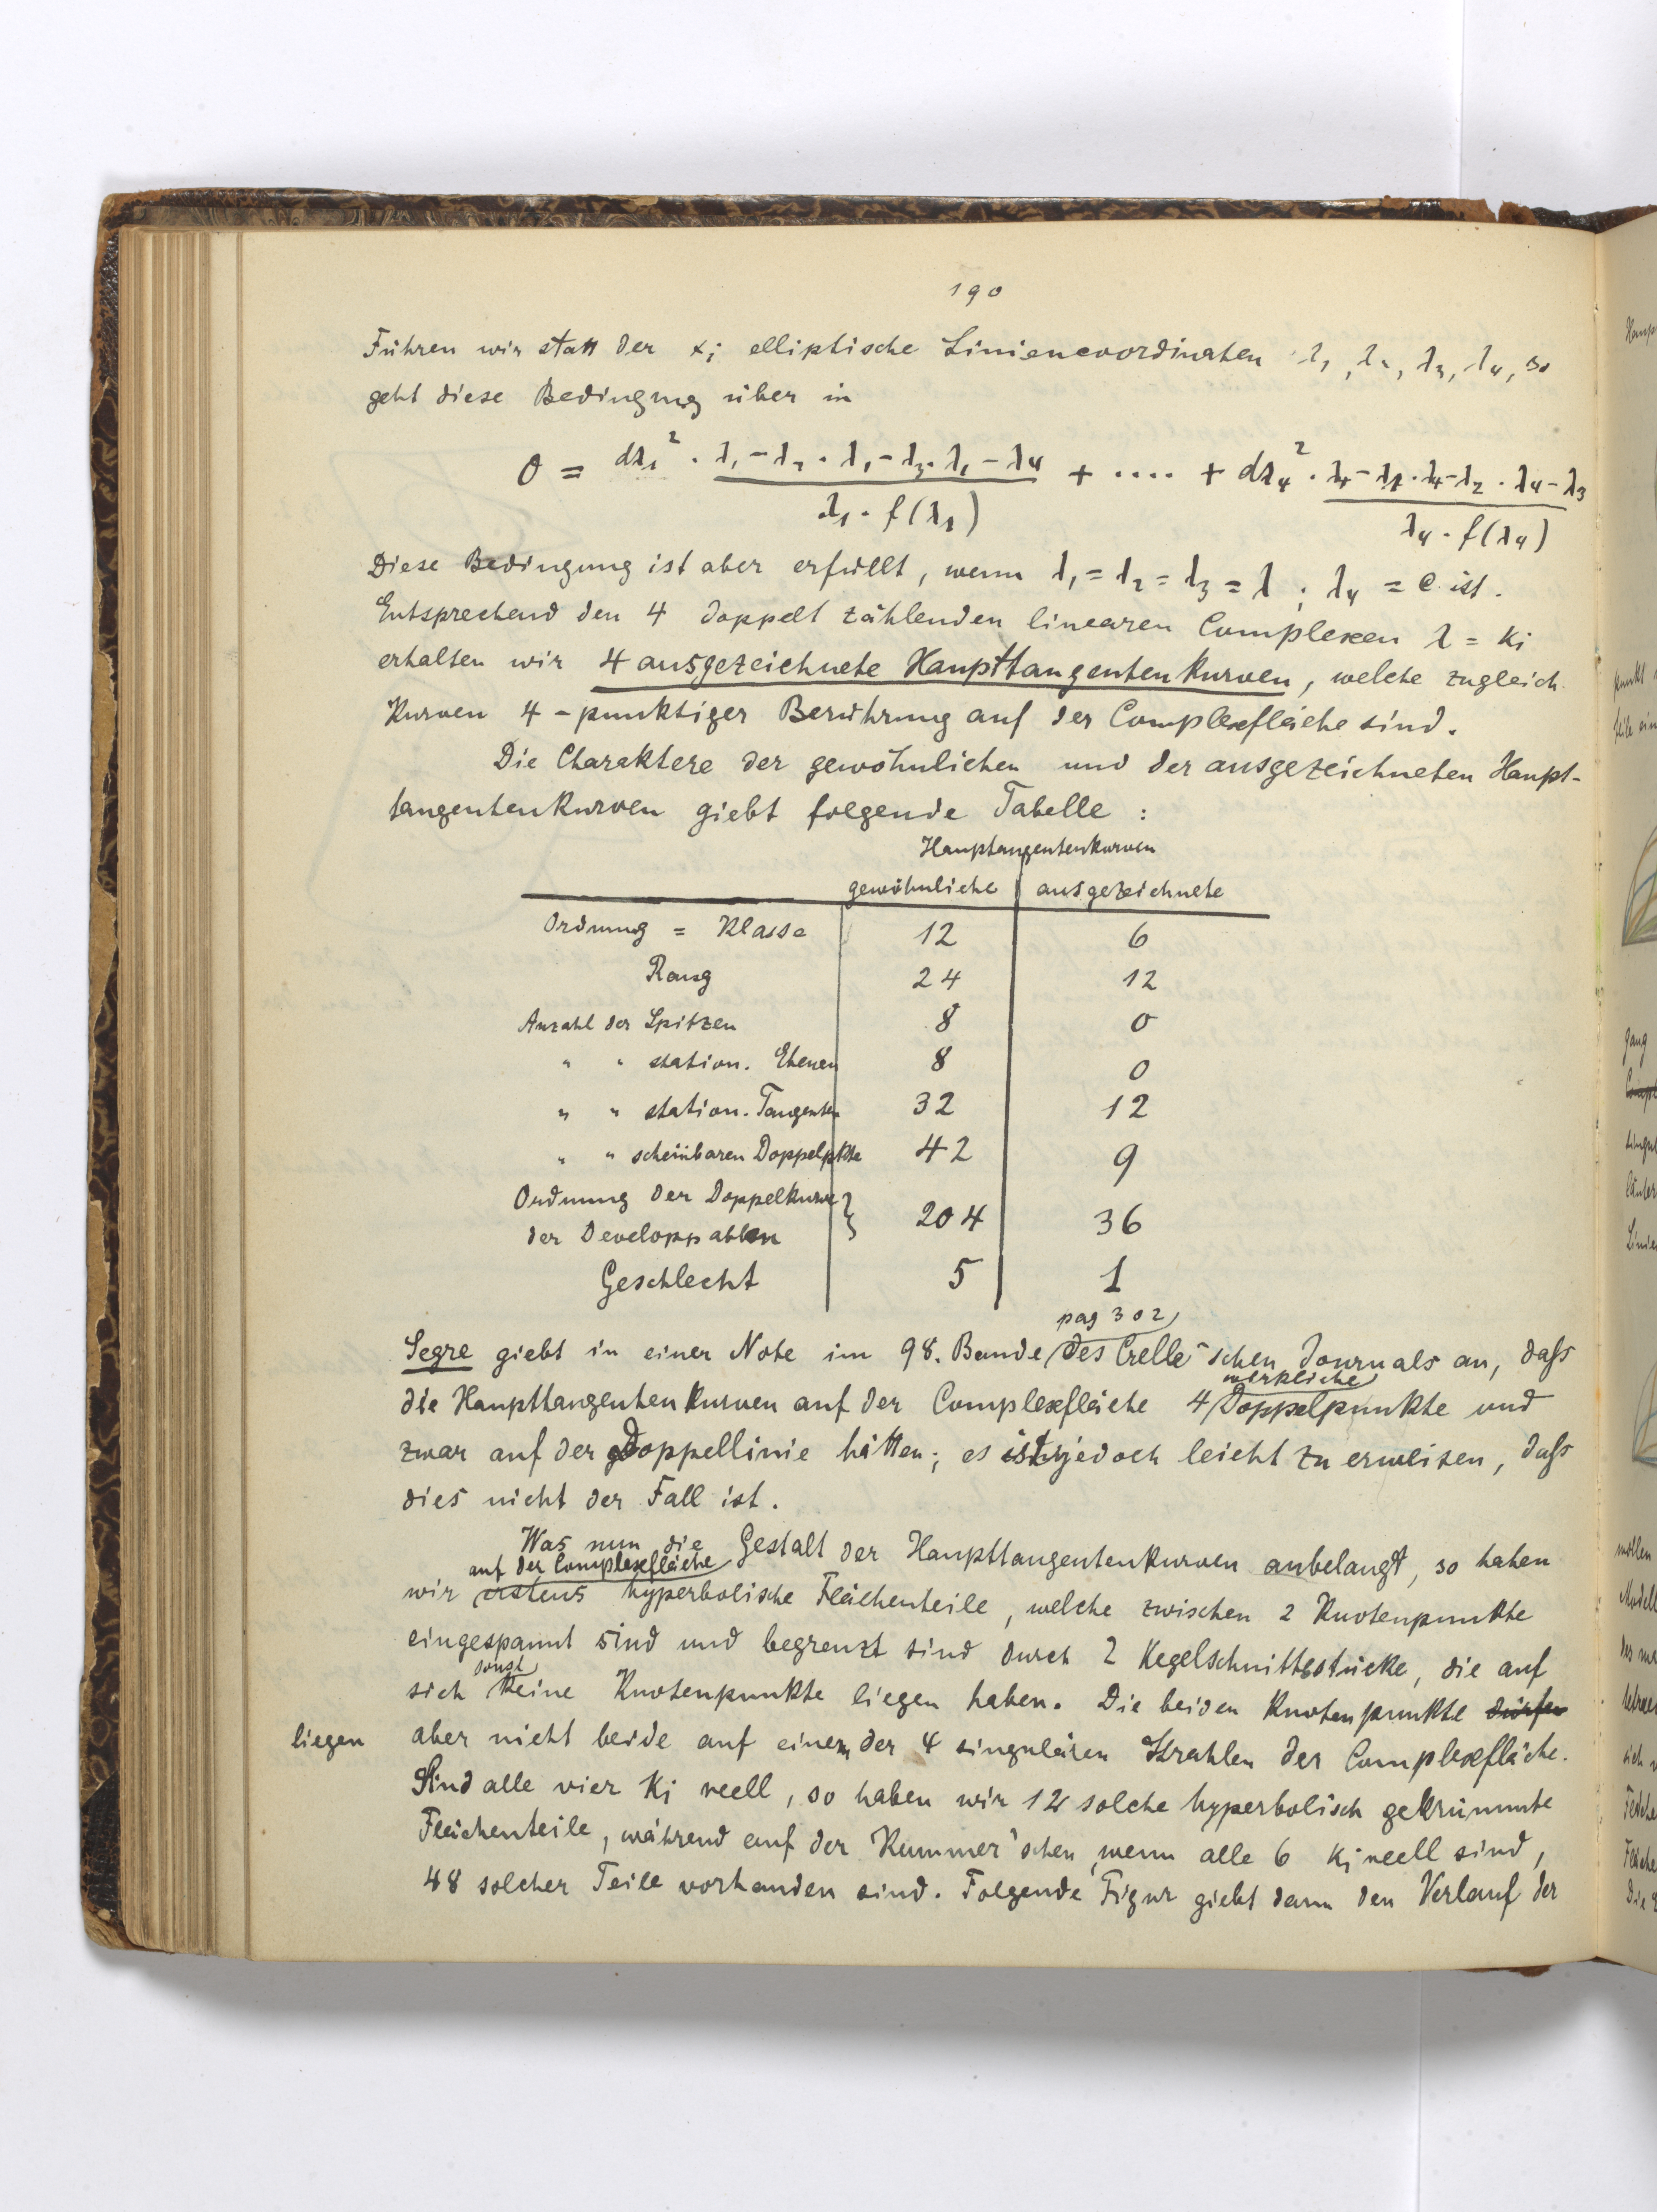 190
Führen wir statt der xi elliptische Liniencoordinaten λ1, λ2, λ3, λ4, so
geht diese Bedingung über in
0 = dλ1² · (λ1-λ2 · λ1-λ3 · λ1-λ4) / (λ1 · f(λ1)) + .... + dλ4² · (λ4-λ1 · λ4-λ2 · λ4-λ3) / (λ4 · f(λ4))
Diese Bedingung ist aber erfüllt, wenn λ1 = λ2 = λ3 = λ ; λ4 = c ist.
Entsprechend den 4 doppelt zählenden linearen Complexen λ = ki
erhalten wir 4 ausgezeichnete Haupttangentenkurven, welche zugleich
Kurven 4-punktiger Berührung auf der Complexfläche sind.
Die Charaktere der gewöhnlichen und der ausgezeichneten Haupt-
tangentenkurven giebt folgende Tabelle :
Hauptangentenkurven
gewöhnliche | ausgezeichnete
Ordnung = Klasse 12 6
Rang 24 12
Anzahl der Spitzen 8 0
" " station. Ebenen 8 0
" " station. Tangenten 32 12
" " scheinbaren Doppelpkte 42 9
Ordnung der Doppelkurve }
der Developpablen } 204 36
Geschlecht 5 1
pag 302
Segre giebt in einer Note im 98. Bande des Crelle'schen Journals an, daſs
wirkliche
die Haupttangentenkurven auf der Complexfläche 4 Doppelpunkte und
zwar auf der Doppellinie hätten; es ist jedoch leicht zu erweisen, daſs
dies nicht der Fall ist.
Was nun die Gestalt der Haupttangentenkurven anbelangt, so haben
auf der Complexfläche
wir erstens hyperbolische Flächenteile, welche zwischen 2 Knotenpunkte
eingespannt sind und begrenzt sind durch 2 Kegelschnittsstücke, die auf
sonst
sich keine Knotenpunkte liegen haben. Die beiden Knotenpunkte dürfen
liegen aber nicht beide auf einem der 4 singulären Strahlen der Complexfläche.
Sind alle vier ki reell, so haben wir 12 solche hyperbolisch gekrümmte
Flächenteile, während auf der Kummer'schen, wenn alle 6 ki reell sind,
48 solcher Teile vorhanden sind. Folgende Figur giebt dann den Verlauf der